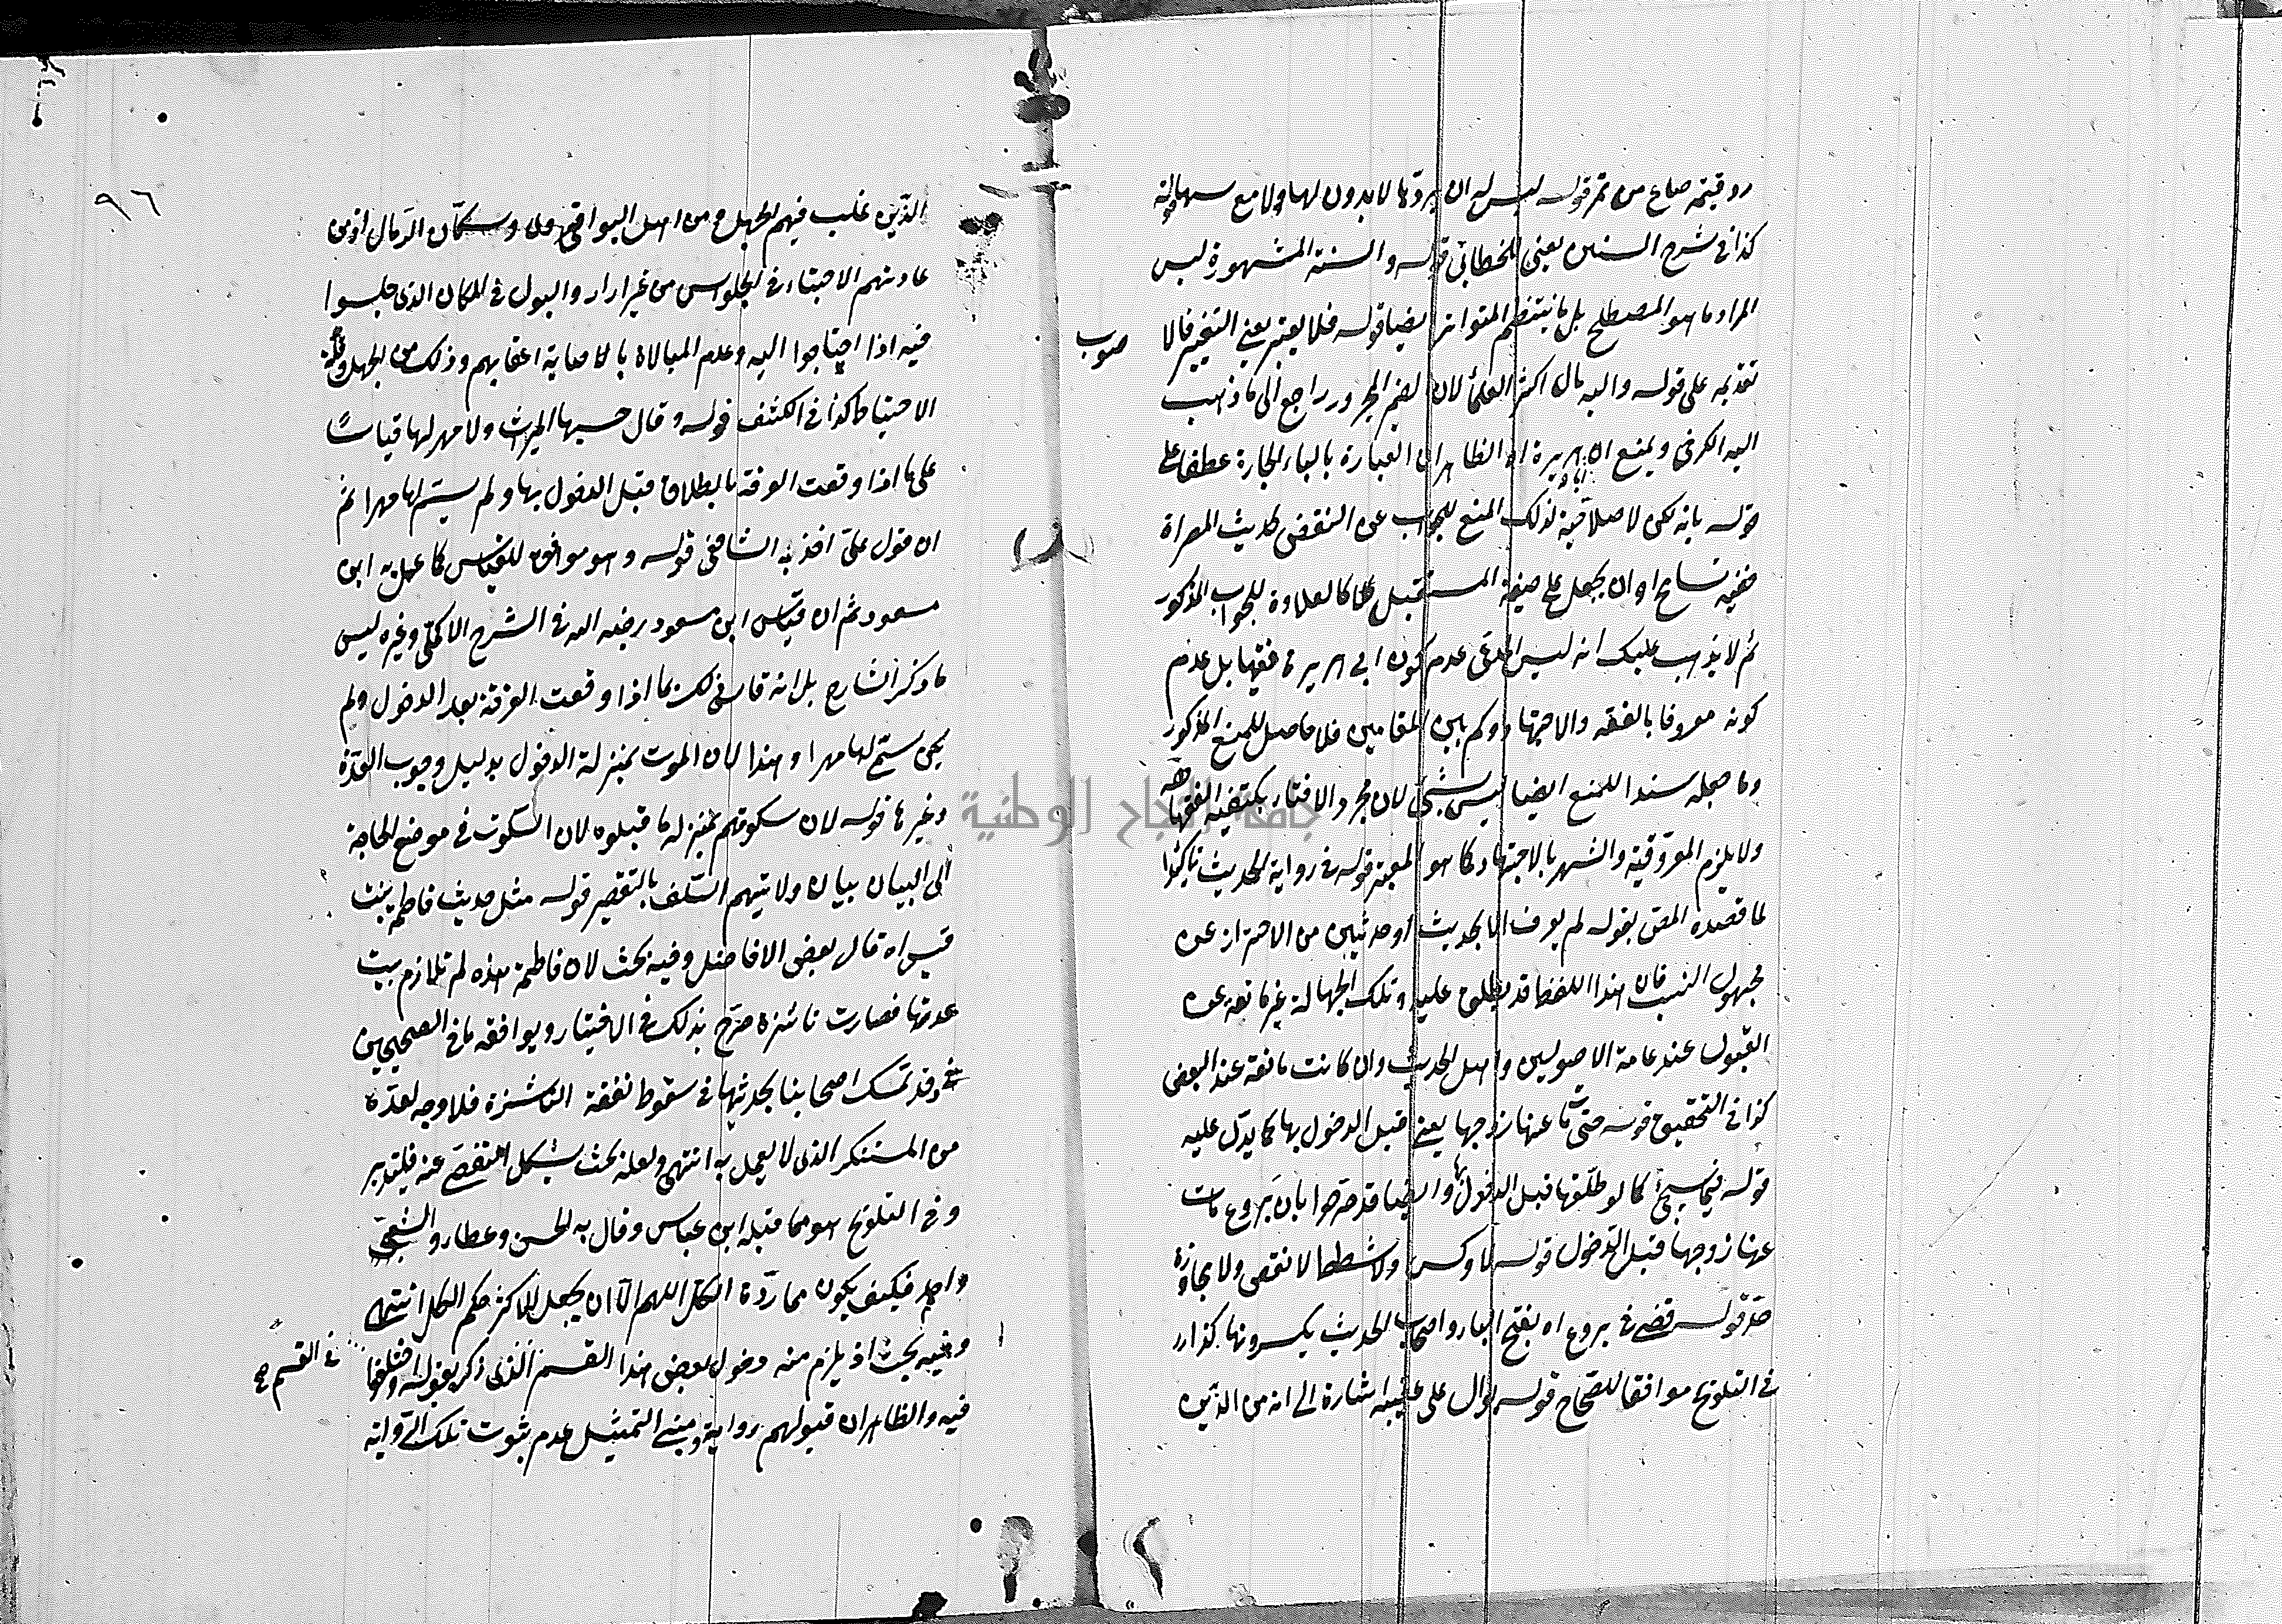 رد قيمته صاع من تمر قوله ليس له ان يردها لا بدون لها ولا مع
كذا في شرح السنن يعني للخطابي قوله والسنة المشهورة ليس
المراد ما هو المصطلح بل ما ينتظم المتواتر ايضا قوله فلا يعتبر يعني التخيير فالا
صوب
تقديمه على قوله واليه مال اكثر العلماء لان الضمير المجرور راجع الى ما ذهب
اليه الكرخي ويمنع ان ابا هريرة اه الظاهر ان العبارة بالباء الجارة عطفا على
قوله بانه لكن لا صلاحية لذلك المنع للجواب عن النقض بحديث المصراة
ففيه تسامح او ان يجعل على صيغة المستقبل كالعلاوة للجواب المذكور
ثم لا يذهب عليك انه ليس المدعى عدم كون ابي هريرة فقيها بل عدم
كونه معروفا بالفقه والاجتهاد وكم بين المقامين فلا حاصل للمنع المذكور
وما جعله سندا للمنع ايضا ليس بشئ لان مجرد الافتاء يكتفيه الفقاهة
ولا يلزم المعروفية والشهر بالاجتهاد كما هو المعتبر قوله في رواية الحديث تاكيدا
لما قصده المص بقوله لم يعرف الا بحديث او حديثين من الاحتراز عن
مجهول النسب فان هذا اللفظ قد يطلق عليه وتلك الجهالة غير مانعة عن
القبول عند عامة الاصوليين واهل الحديث وان كانت مانعة عند البعض
كذا في التحقيق قوله حتى مات عنها زوجها يعني قبل الدخول بها كما يدل عليه
قوله فيما سيجئ كما لو طلقها قبل الدخول بها وايضا قد صرحوا بان بروع مات
عنها زوجها قبل الدخول قوله لا وكس ولا شطط لا نقص ولا مجاوزة
حد قوله قضى في بروع اه بفتح الباء واصحاب الحديث يكسرونها كذا
في التلويح موافقا للصحاح قوله بوال على عقبيه اشارة الى انه من الذين
٩٦
الذين غلب فيهم الجهل من اهل البوادي وسكان الرمال اذ من
عادتهم الاحتباء في الجلوس من غير ازار والبول في المكان الذي جلسوا
فيه اذا احتاجوا اليه وعدم المبالاة باصابة اعقابهم وذلك من الجهل وقلة
الاحتياط كذا في الكشف قوله وقال حسبها الميراث ولا مهر لها قياسًا
على ما اذا وقعت الفرقة بالطلاق قبل الدخول بها ولم يسم لها مهرا ثم
ان قول علي اخذ به الشافعي قوله وهو موافق للقياس كما عمل به ابن
مسعود ثم ان قياس ابن مسعود رضيه الله في الشرح الاكملي وغيره ليس
ما ذكر الشارح بل انه قاس ذلك بما اذا وقعت الفرقة بعد الدخول ولم
يكن ستم لها مهرا وهذا لان الموت بمنزلة الدخول بدليل وجوب العدة
وغيرها قوله لان سكوتهم بمنزلة ما قبلوه لان السكوت في موضع الحاجة
الى البيان بيان ولا يتهم السلف بالتقصير قوله مثل حديث فاطمة بنت
قيس اه قال بعض الافاضل وفيه بحث لان فاطمة هذه لم تلازم بيت
عدتها فصارت ناشزة صرح بذلك في الاختيار ويوافقه ما في الصحيحين
وقد تمسك اصحابنا بحديثها في سقوط نفقة الناشزة فلا وجه لعده
من المستنكر الذي لا يعمل به انتهى ولعله بحث يشكل التفصي عنه فليتدبر
وفي التلويح هو مما قبله ابن عباس وقال به الحسن وعطاء والشعبي
واحمد فكيف يكون مما رده الكل اللهم الا ان يجعل للاكثر حكم الكل انتهى
وفيه بحث اذ يلزم منه دخول بعض هذا القسم الذي ذكر بقوله واختلفوا
في القسم
فيه والظاهر ان قبولهم رواية ومبنى التمثيل عدم ثبوت تلك الرواية
جامعة النجاح الوطنية